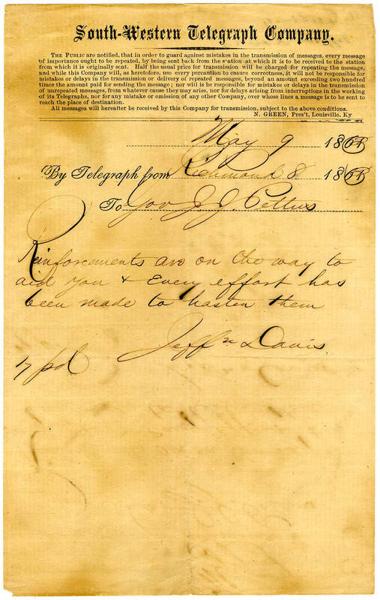 South-Western Telegraph Company.
THE PUBLIC are notified, that in order to guard against mistakes in the transmission of messages, every message
of importance ought to be repeated, by being sent back from the station at which it is to be received to the station
from which it is originally sent. Half the usual price for transmission will be charged for repeating the message,
and while this Company will, as heretofore, use every precaution to ensure correctness, it will not be responsible for
mistakes or delays in the transmission or delivery of repeated messages, beyond an amount exceeding two hundred
times the amount paid for sending the message; nor will it be responsible for mistakes or delays in the transmission
of unrepeated messages, from whatever cause they may arise, nor for delays arising from interruptions in the working
of its Telegraphs, nor for any mistake or omission of any other Company, over whose lines a message is to be sent to
reach the place of destination.
All messages will hereafter be received by this Company for transmission, subject to the above conditions.
N. GREEN, Pres't, Louisville, Ky
May 9 1863
By Telegraph from Richmond 8 1863
To Gov J. J. Pettus
Reinforcements are on the way to
aid you & Every effort has
been made to hasten them
Jeffn Davis
pd